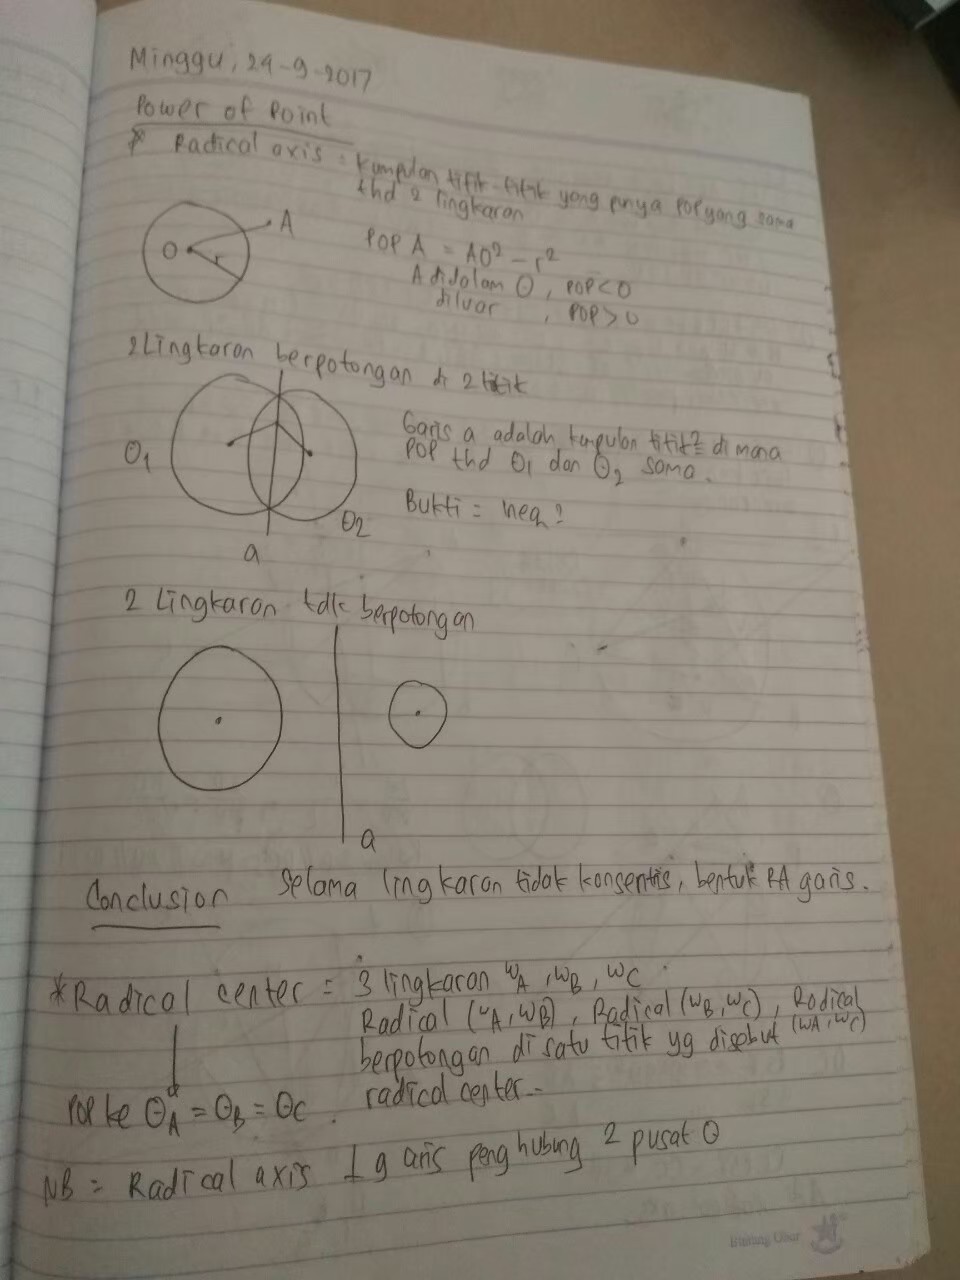 Minggu, 24-9-2017
Power of Point
* Radical axis = kumpulan titik-titik yang punya POP yang sama
thd 2 lingkaran
O r A
POP A = AO² - r²
A didalam O, POP < 0
diluar , POP > 0
2 Lingkaran berpotongan di 2 titik
Garis a adalah kumpulan titik² di mana
POP thd Θ₁ dan Θ₂ sama.
Θ₁
Bukti =
Θ2
a
2 Lingkaran tdk berpotongan
a
Conclusion Selama lingkaran tidak konsentris, bentuk RA garis.
*Radical center = 3 lingkaran ωA, ωB, ωC
Radical (ωA, ωB), Radical (ωB, ωC), Radical
(ωA, ωC)
berpotongan di satu titik yg disebut
radical center.
POP ke ΘA = ΘB = ΘC
NB = Radical axis ⊥ garis penghubung 2 pusat Θ
Bintang Obor